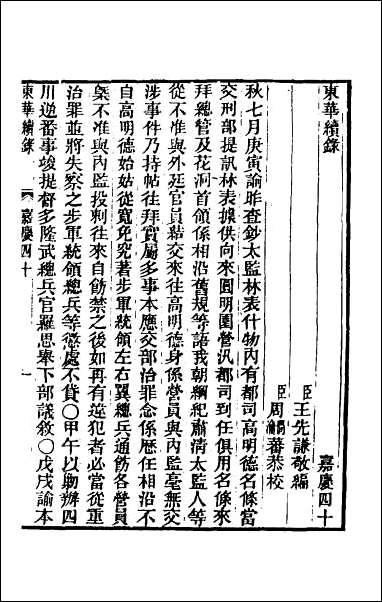 東華續錄　嘉慶四十
臣王先謙敬編
臣周瀹蕃恭校
秋七月庚寅諭昨查鈔太監林表什物內有都司高明德名條當
交刑部提訊林表據供向來圓明園營汛都司到任俱用名條來
拜總管及花洞首領係相沿舊規等語我朝綱紀肅清太監人等
從不准與外廷官員結交來往高明德身係營員與內監毫無交
涉事件乃持帖往拜實屬多事本應交部治罪念係歷任相沿不
自高明德始姑從寬免究著步軍統領左右翼總兵通飭各營員
槩不准與內監投刺往來自飭禁之後如再有違犯者必當從重
治罪並將失察之步軍統領總兵等懲處不貸〇甲午以勦辦四
川逆番事竣提督多隆武總兵官羅思舉下部議敘〇戊戌諭本
東華續錄　嘉慶四十　一